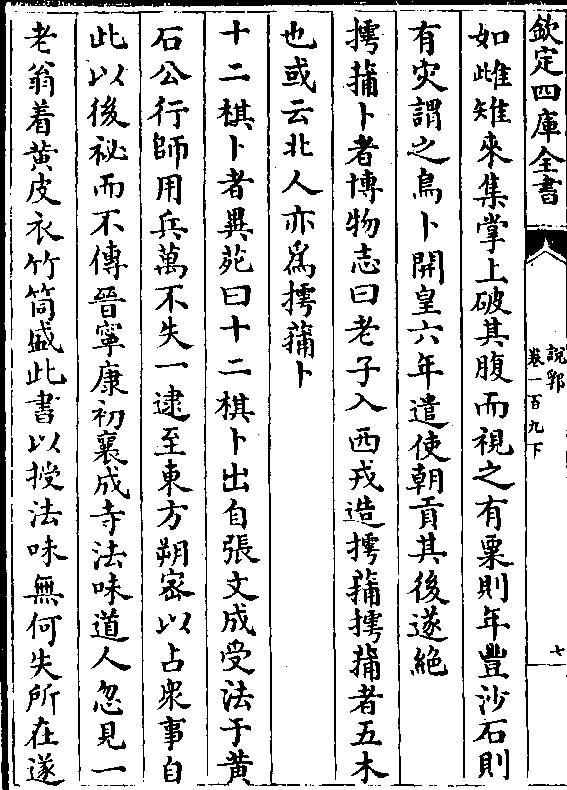 欽定四庫全書
說郛
卷一百九下
七
如雌雉來集掌上破其腹而視之有粟則年豐沙石則
有灾謂之鳥卜開皇六年遣使朝貢其後遂絕
摴蒱卜者博物志曰老子入西戎造摴蒱摴蒱者五木
也或云北人亦為摴蒱卜
十二棋卜者異苑曰十二棋卜出自張文成受法于黄
石公行師用兵萬不失一逮至東方朔密以占衆事自
此以後祕而不傳晉寧康初襄成寺法味道人忽見一
老翁着黄皮衣竹筒盛此書以授法味無何失所在遂